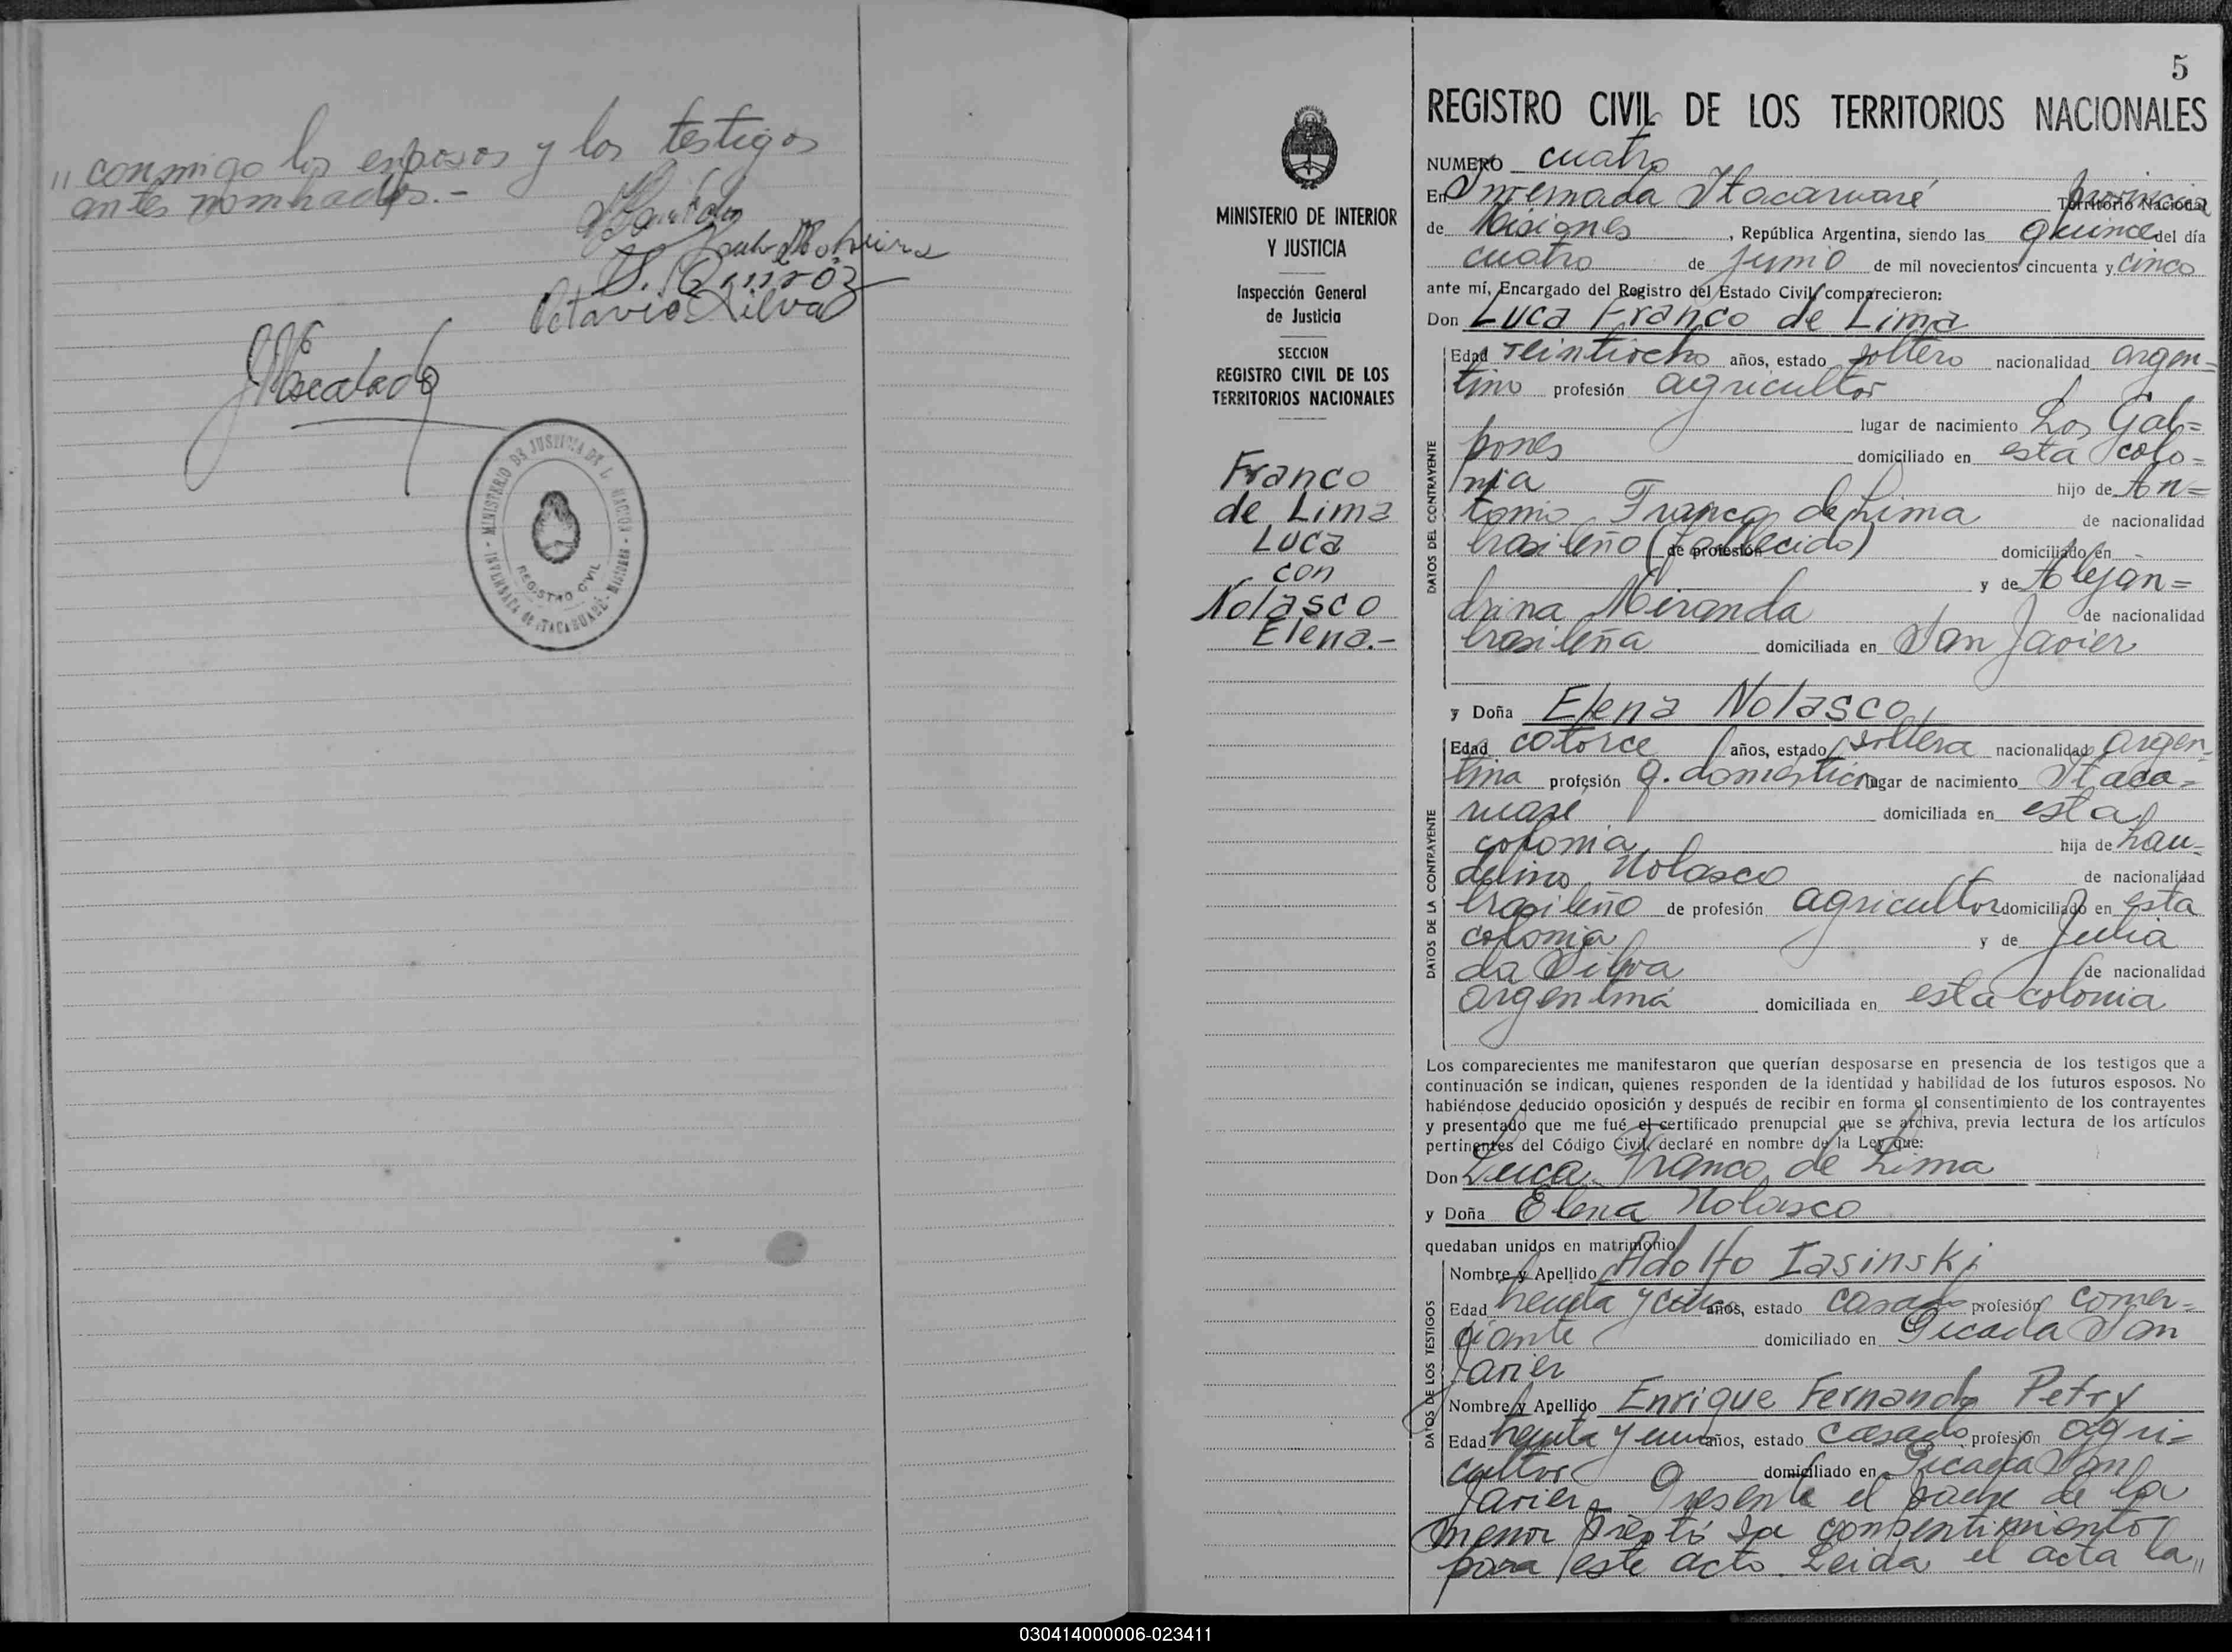 " conmigo los esposos y los testigos
antes nombrados.-
S. Quiróz
Octavio Silva
MINISTERIO DE JUSTICIA DE LA NACION
REGISTRO CIVIL
INVERNADA DE ITACARUARÉ - MISIONES
5
REGISTRO CIVIL DE LOS TERRITORIOS NACIONALES
MINISTERIO DE INTERIOR
Y JUSTICIA
Inspección General
de Justicia
SECCION
REGISTRO CIVIL DE LOS
TERRITORIOS NACIONALES
Franco
de Lima
Luca
con
Nolasco
Elena.-
NUMERO cuatro
En Invernada Itacaruaré provincia Territorio Nacional
de Misiones, República Argentina, siendo las quince del día
cuatro de Junio de mil novecientos cincuenta y cinco
ante mí, Encargado del Registro del Estado Civil, comparecieron:
Don Luca Franco de Lima
DATOS DEL CONTRAYENTE
Edad veintiocho años, estado soltero nacionalidad argen=
tino profesión agricultor
lugar de nacimiento Los Gal=
pones domiciliado en esta colo=
nia hijo de An=
tonio Franco de Lima de nacionalidad
brasileño (fallecido) de profesión domiciliado en
y de Alejan=
drina Miranda de nacionalidad
brasileña domiciliada en San Javier
y Doña Elena Nolasco
DATOS DE LA CONTRAYENTE
Edad catorce años, estado soltera nacionalidad argen=
tina profesión q. domésticos lugar de nacimiento Itaca=
ruaré domiciliada en esta
colonia hija de Lau=
delino Nolasco de nacionalidad
brasileño de profesión agricultor domiciliado en esta
colonia y de Julia
da Silva de nacionalidad
argentina domiciliada en esta colonia
Los comparecientes me manifestaron que querían desposarse en presencia de los testigos que a
continuación se indican, quienes responden de la identidad y habilidad de los futuros esposos. No
habiéndose deducido oposición y después de recibir en forma el consentimiento de los contrayentes
y presentado que me fué el certificado prenupcial que se archiva, previa lectura de los artículos
pertinentes del Código Civil, declaré en nombre de la Ley que:
Don Luca Franco de Lima
y Doña Elena Nolasco
quedaban unidos en matrimonio
DATOS DE LOS TESTIGOS
Nombre y Apellido Adolfo Iasinski
Edad treinta y cinco años, estado casado profesión comer=
ciante domiciliado en Picada San
Javier
Nombre y Apellido Enrique Fernando Petry
Edad treinta y un años, estado casado profesión agri=
cultor domiciliado en Picada San
Javier.- Presente el padre de la
menor prestó su consentimiento
para este acto. Leida el acta la "
030414000006-023411